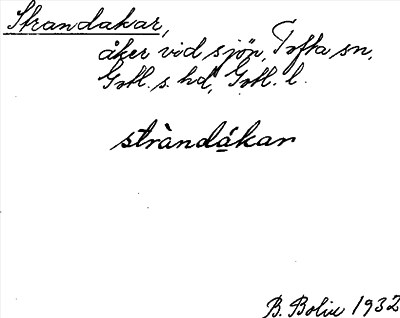 Strandakar,
åker vid sjön, Tofta sn,
Gotl. s. hd, Gotl. l.
stràndákar
B. Bolin 1932